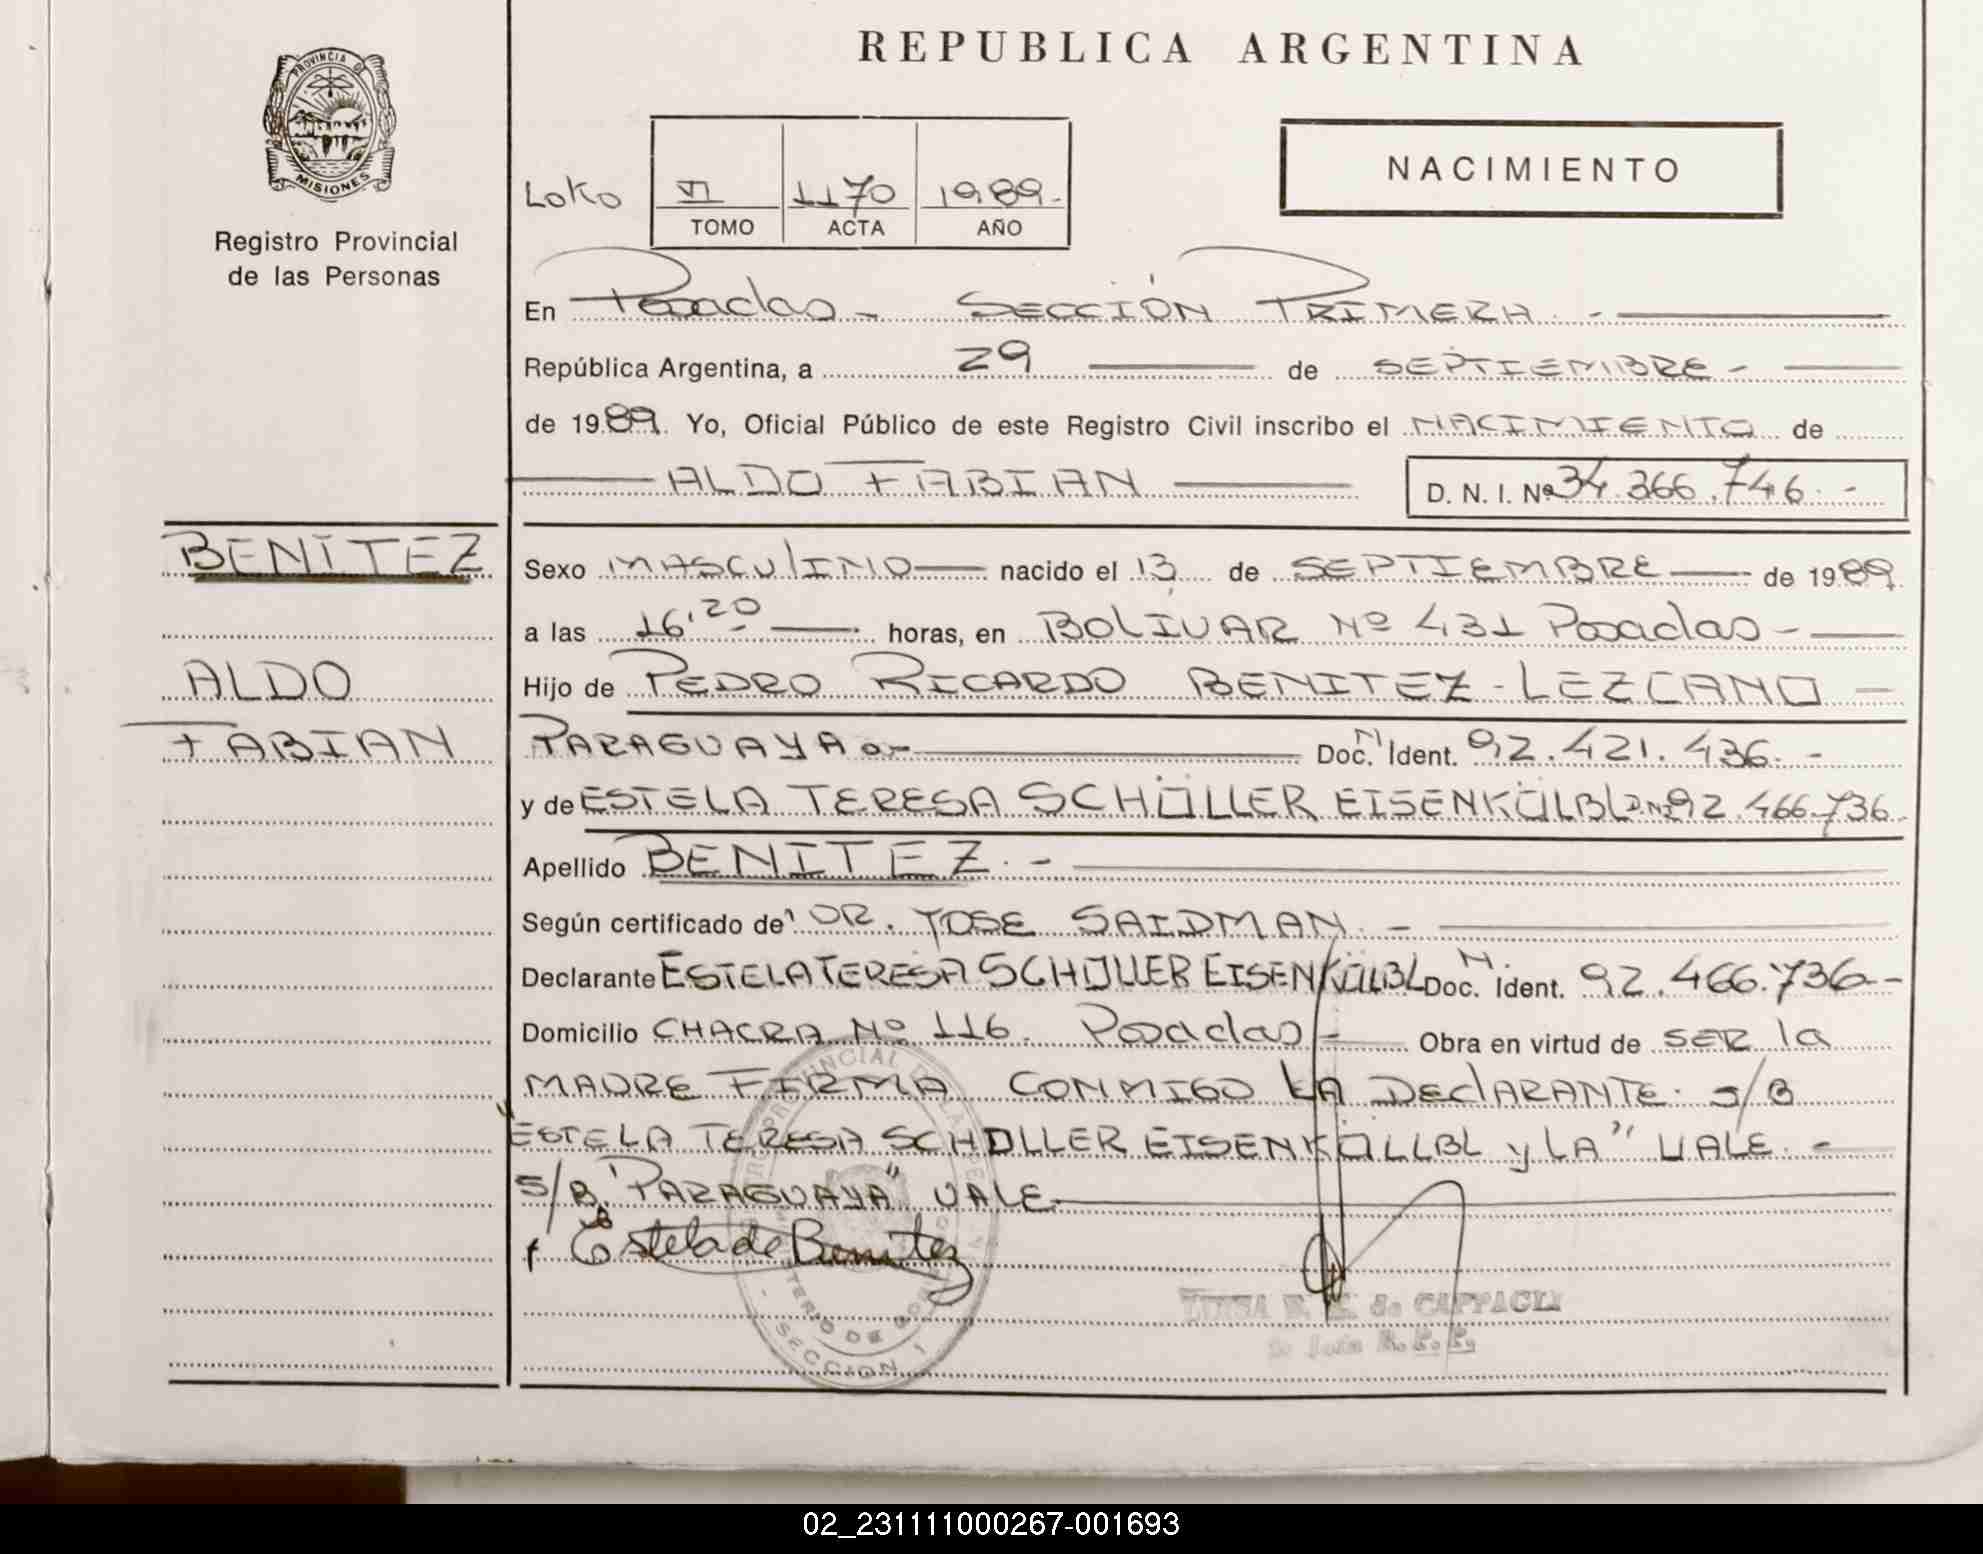 REPUBLICA ARGENTINA
PROVINCIA DE
MISIONES
Registro Provincial
de las Personas
NACIMIENTO
II 1170 1989.-
TOMO ACTA AÑO
En Posadas - SECCIÓN PRIMERA. -
República Argentina, a 29 de SEPTIEMBRE -
de 1989. Yo, Oficial Público de este Registro Civil inscribo el NACIMIENTO de
ALDO FABIAN D. N. I. Nº 34.366.746. -
BENITEZ
ALDO
FABIAN
Sexo MASCULINO nacido el 13 de SEPTIEMBRE de 1989.
a las 16,20 horas, en BOLIVAR Nº 431 Posadas -
Hijo de PEDRO RICARDO BENITEZ - LEZCANO -
PARAGUAYA Doc. N Ident. 92.421.436. -
y de ESTELA TERESA SCHÜLLER EISENKÜLBL D.N.I 92.466.736.
Apellido BENITEZ. -
Según certificado de DR. JOSE SAIDMAN. -
Declarante ESTELA TERESA SCHULLER EISENKÜLBL Doc. N. Ident. 92.466.736 -
Domicilio CHACRA Nº 116. Posadas - Obra en virtud de SER la
MADRE FIRMA CONMIGO LA DEClARANTE. S/B
ESTELA TERESA SCHULLER EISENKÜLLBL y LA" VALE. -
S/B. "PARAGUAYA" VALE
Estela de Benitez
SECCION 1
de CAPPAGLI
02_231111000267-001693